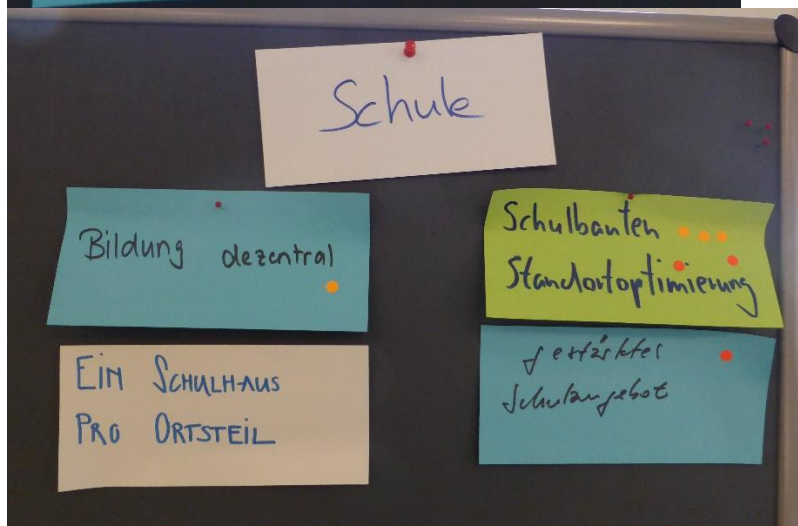 Schule
Bildung dezentral
EIN SCHULHAUS
PRO ORTSTEIL
Schulbauten
Standortoptimierung
gestärktes
Schulangebot